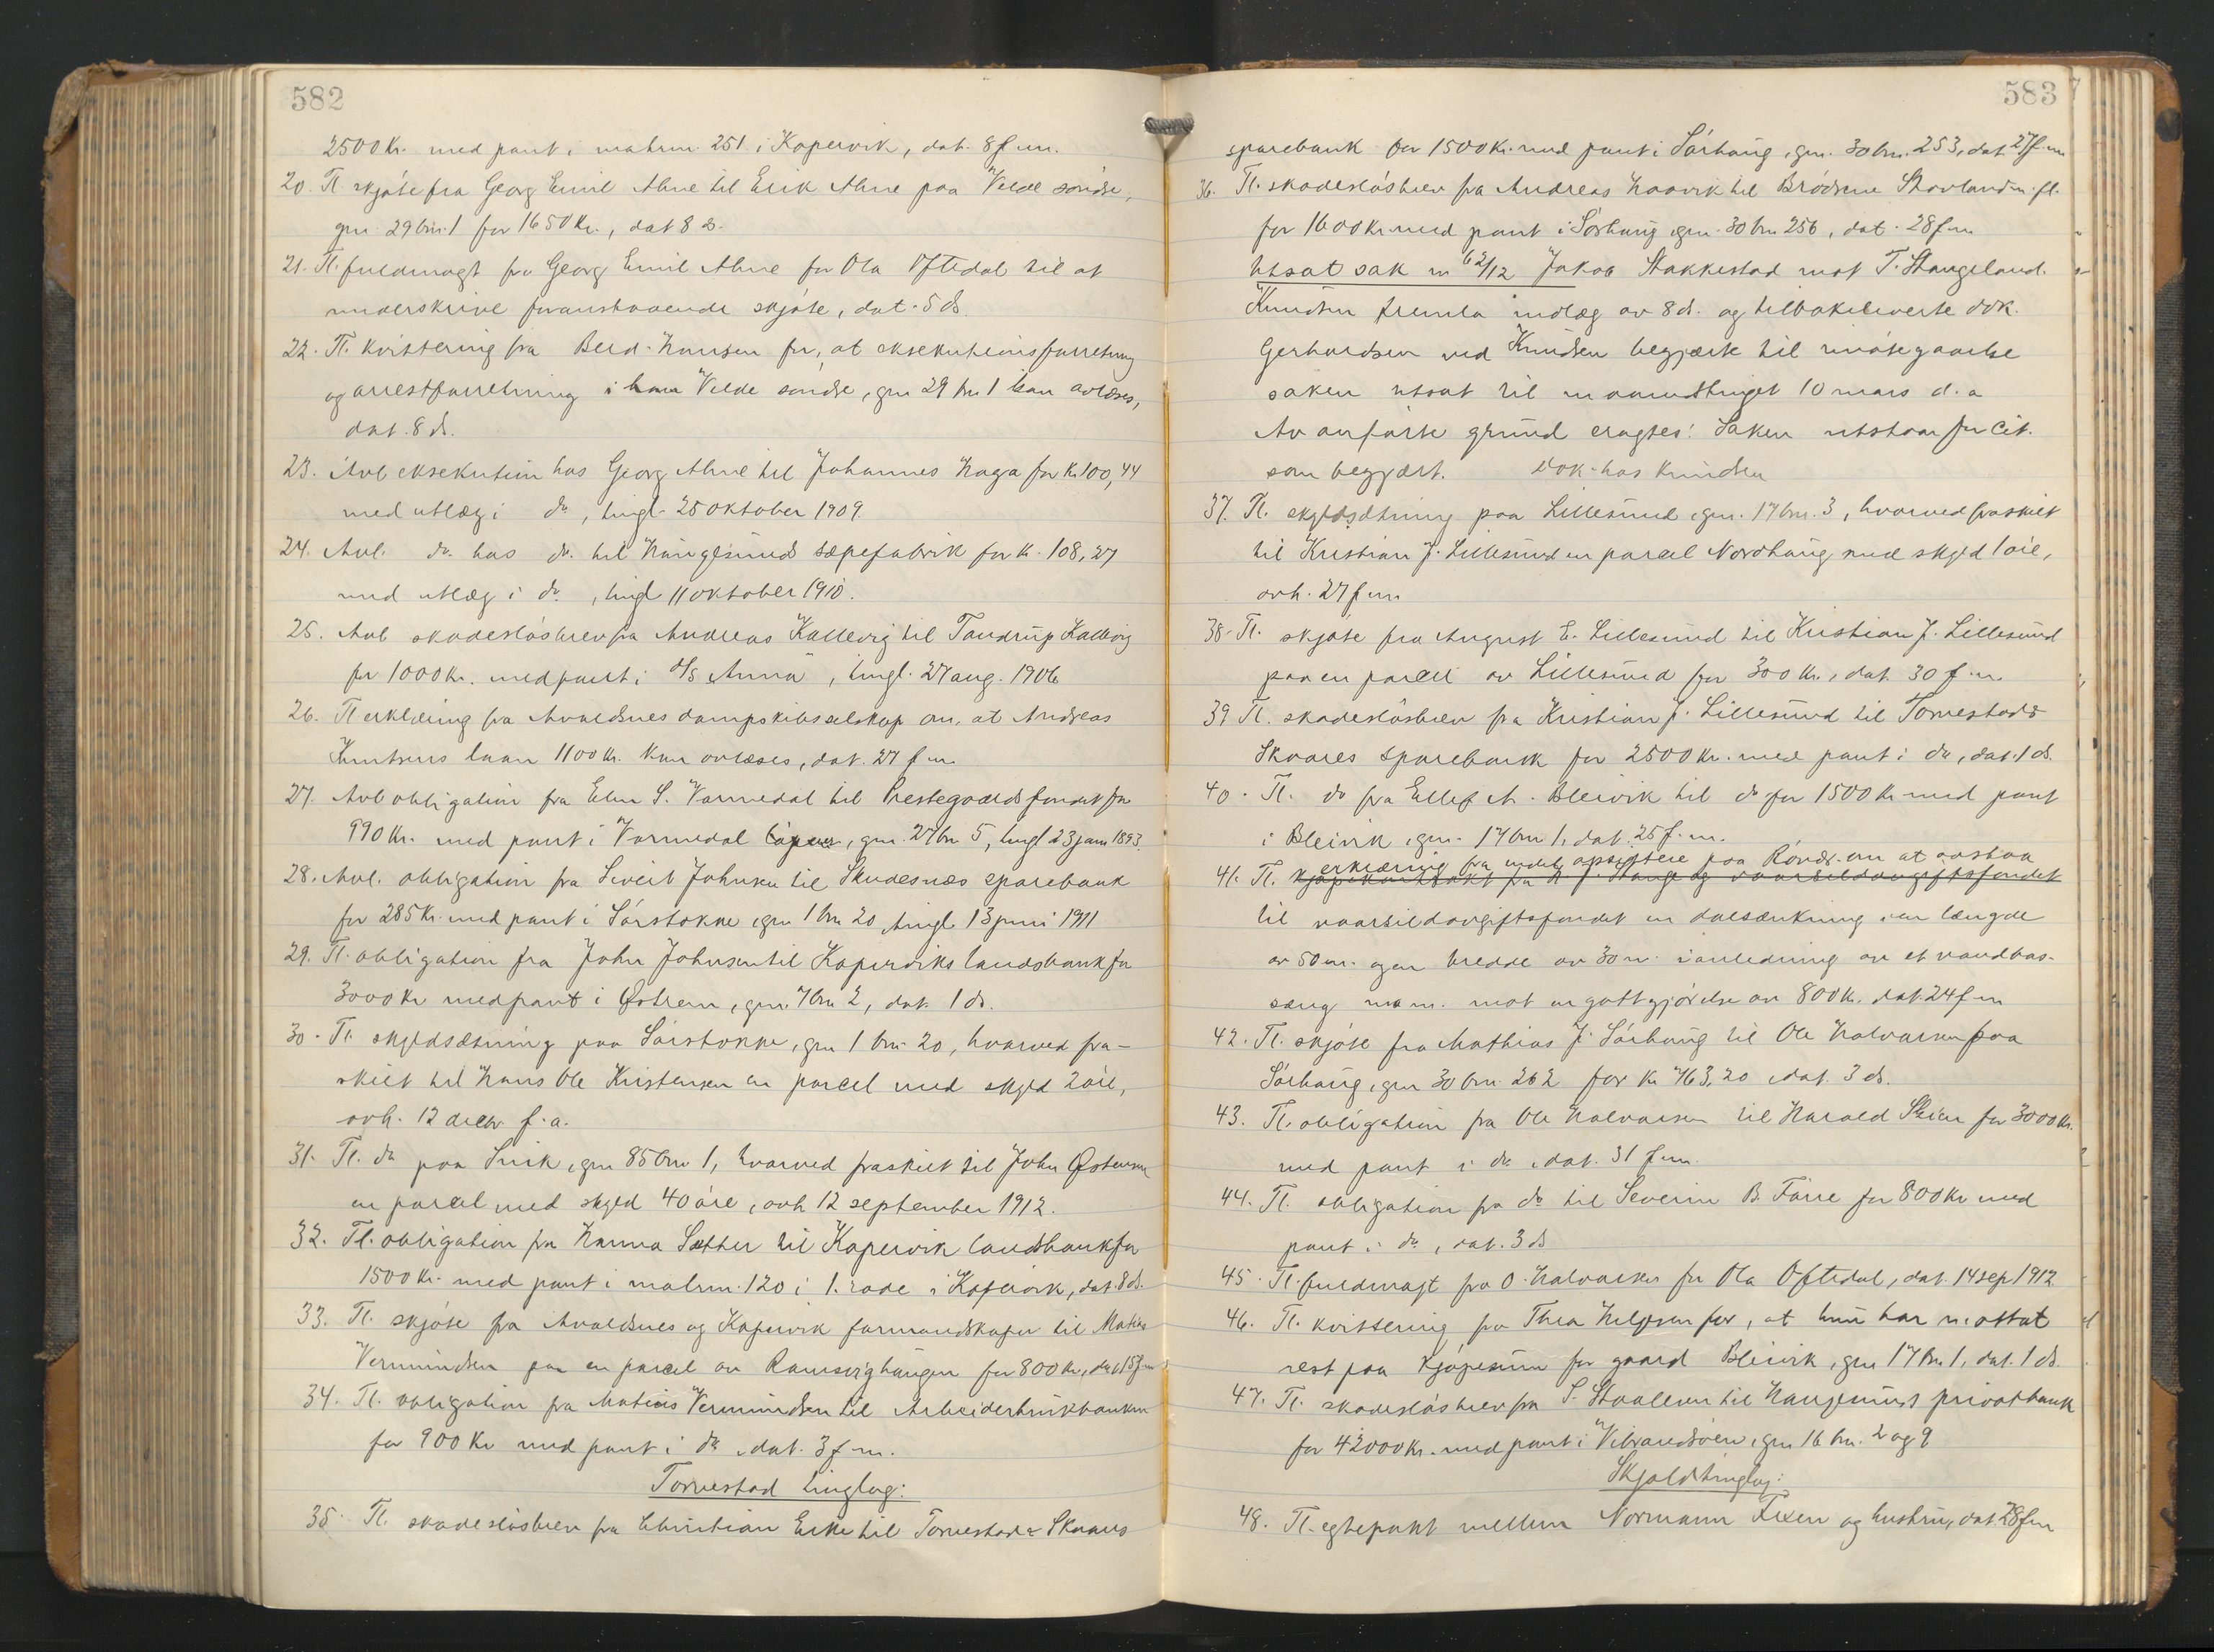 582
2500 Kr. med pant i matrnr. 251 i Kopervik, dat. 8 f.m.
20. Tl. skjøte fra Georg Emil Alme til Erik Alme paa Velde søndre,
gnr 29 bnr. 1 for 1650 Kr., dat 8 ds.
21. Tl. fuldmagt fra Georg Emil Alme for Ola Oftedal til at
underskrive foranstaaende skjøte, dat. 5 ds.
22. Tl. kvittering fra Hansen for, at eksekutionsforretning
og arrestforretning i Velde søndre, gnr 29 bnr 1 kan avlæses,
dat. 8 ds.
23. Avl. eksekution hos Georg Alme til Johannes Haga for Kr. 100,44
med utlæg i do, tingl. 25 oktober 1909.
24. Avl. do. hos do. til Haugesunds sæpefabrik for Kr. 108,27
med utlæg i do, tingl 11 oktober 1910.
25. Avl. skadesløsbrev fra Andreas Kallevig til Tandrup Kallevig
for 1000 Kr. med pant i D/S "Anna", tingl. 27 aug. 1906
26. Tl. erklæring fra Avaldsnes dampskibsselskap om, at Andreas
Knutsens laan 1100 Kr. kan avlæses, dat. 27 f.m.
27. Avl obligation fra S. Vormedal til Prestegaardsfondet for
990 Kr. med pant i Vormedal, gnr. 27 bnr 5, tingl 23 jan 1893.
28. Avl. obligation fra Sivert Johnsen til Skudesnæs sparebank
for 285 Kr. med pant i Sørstokke, gnr 1 bnr 20, tingl 13 juni 1911
29. Tl. obligation fra John Johnsen til Koperviks landsbank for
3000 Kr med pant i Østrem, gnr. 7 bnr 2, dat. 1 ds.
30. Tl. skyldsætning paa Sørstokke, gnr 1 bnr. 20, hvorved fra-
skilt til Hans Ole Kristensen en parcel med skyld 2 øre,
avh. 12 decbr. f.a.
31. Tl. do paa Snik, gnr 85 bnr 1, hvorved fraskilt til John Østensen
en parcel med skyld 40 øre, avh 12 september 1912.
32. Tl. obligation fra Hanna Sætter til Kopervik landsbank for
1500 Kr. med pant i matrnr. 120 i 1. rode i Kopervik, dat. 8 ds.
33. Tl. skjøte fra Avaldsnes og Kopervik formandskaper til Matias
Vermundsen paa en parcel av Ramsvighaugen for 800 Kr., dat 15 f.m
34. Tl. obligation fra Matias Vermundsen til Arbeiderbrukbanken
for 900 Kr med pant i do, dat. 3 f.m.
Torvestad tinglag:
35. Tl. skadesløsbrev fra Christian Eike til Torvestad & Skaares
583
sparebank for 1500 Kr. med pant i Sørhaug, gnr. 30 bnr. 253, dat 27 f.m
36. Tl. skadesløsbrev fra Andreas Haavik til Brødrene Stavland m. fl.
for 1600 Kr. med pant i Sørhaug, gnr. 30 bnr 256, dat. 28 f.m
Utsat sak nr 62/12 Jakob Stakkestad mot T. Stangeland.
Knudsen fremla indlæg av 8 ds. og tilbakeleverte dok.
Gerhardsen ved Knudsen begjærte til imøtegaaelse
saken utsat til maanedstinget 10 mars d. a
Av anførte grund eragtes: Saken utstaar for Cit.
som begjært. Dok. hos Knudsen
37. Tl. skyldsætning paa Lillesund, gnr. 17 bnr. 3, hvorved fraskilt
til Kristian J. Lillesund en parcel Nordhaug med skyld 1 øre,
avh. 27 f.m
38. Tl. skjøte fra August E. Lillesund til Kristian J. Lillesund
paa en parcel av Lillesund for 300 Kr., dat. 30 f.m.
39 Tl. skadesløsbrev fra Kristian J. Lillesund til Torvestad &
Skaares sparebank for 2500 Kr. med pant i do, dat. 1 ds.
40. Tl. do fra Ellef A. Bleivik til do for 1500 Kr med pant
i Bleivik, gnr. 17 bnr 1, dat. 25 f.m.
erklæring fra endel opsittere paa Røvær om at avstaa
41. Tl. kjøpekontrakt fra H. J. Stange og vaarsildavgiftsfondet
til vaarsildavgiftsfondet en dalsænkning i en længde
av 50 m. og en bredde av 30 m. i anledning av et vandbas-
sæng m.m. mot en godtgjørelse av 800 Kr. dat. 24 f.m
42. Tl. skjøte fra Mathias J. Sørhaug til Ole Halvorsen paa
Sørhaug, gnr 30 bnr. 262 for Kr 763,20, dat. 3 ds.
43. Tl. obligation fra Ole Halvorsen til Harald Skien for 3000 Kr.
med pant i do, dat. 31 f.m.
44. Tl. obligation fra do til Severin B. Førre for 800 Kr med
pant i do, dat. 3 ds
45. Tl. fuldmagt fra O. Halvorsen for Ola Oftedal, dat. 14 sep 1912
46. Tl. kvittering fra Thea Helgesen for, at hun har mottat
rest paa kjøpesum for gaard Bleivik, gnr 17 bnr 1, dat. 1 ds.
47. Tl. skadesløsbrev fra S. Staalesen til Haugesunds privatbank
for 42000 Kr. med pant i Vibrandsøen, gnr 16 bnr. 2 og 9
Skjold tinglag:
48. Tl. egtepakt mellem Normann Fixen og hustru, dat. 28 f.m